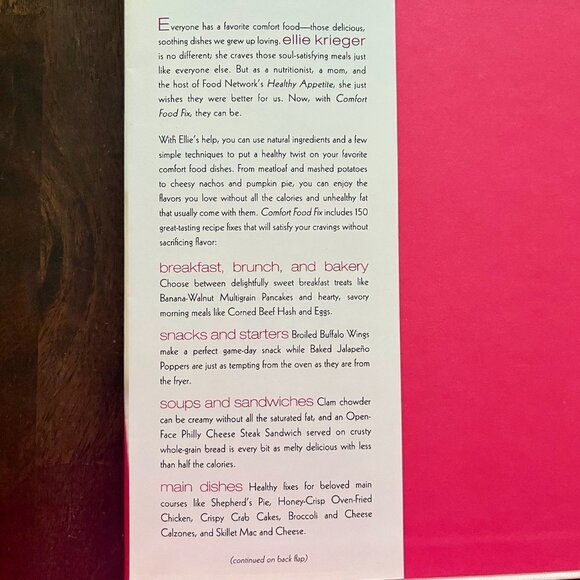 Everyone has a favorite comfort food—those delicious,
soothing dishes we grew up loving. ellie krieger
is no different; she craves those soul-satisfying meals just
like everyone else. But as a nutritionist, a mom, and
the host of Food Network's Healthy Appetite, she just
wishes they were better for us. Now, with Comfort
Food Fix, they can be.
With Ellie's help, you can use natural ingredients and a few
simple techniques to put a healthy twist on your favorite
comfort food dishes. From meatloaf and mashed potatoes
to cheesy nachos and pumpkin pie, you can enjoy the
flavors you love without all the calories and unhealthy fat
that usually come with them. Comfort Food Fix includes 150
great-tasting recipe fixes that will satisfy your cravings without
sacrificing flavor:
breakfast, brunch, and bakery
Choose between delightfully sweet breakfast treats like
Banana-Walnut Multigrain Pancakes and hearty, savory
morning meals like Corned Beef Hash and Eggs.
snacks and starters Broiled Buffalo Wings
make a perfect game-day snack while Baked Jalapeño
Poppers are just as tempting from the oven as they are from
the fryer.
soups and sandwiches Clam chowder
can be creamy without all the saturated fat, and an Open-
Face Philly Cheese Steak Sandwich served on crusty
whole-grain bread is every bit as melty delicious with less
than half the calories.
main dishes Healthy fixes for beloved main
courses like Shepherd's Pie, Honey-Crisp Oven-Fried
Chicken, Crispy Crab Cakes, Broccoli and Cheese
Calzones, and Skillet Mac and Cheese.
(continued on back flap)